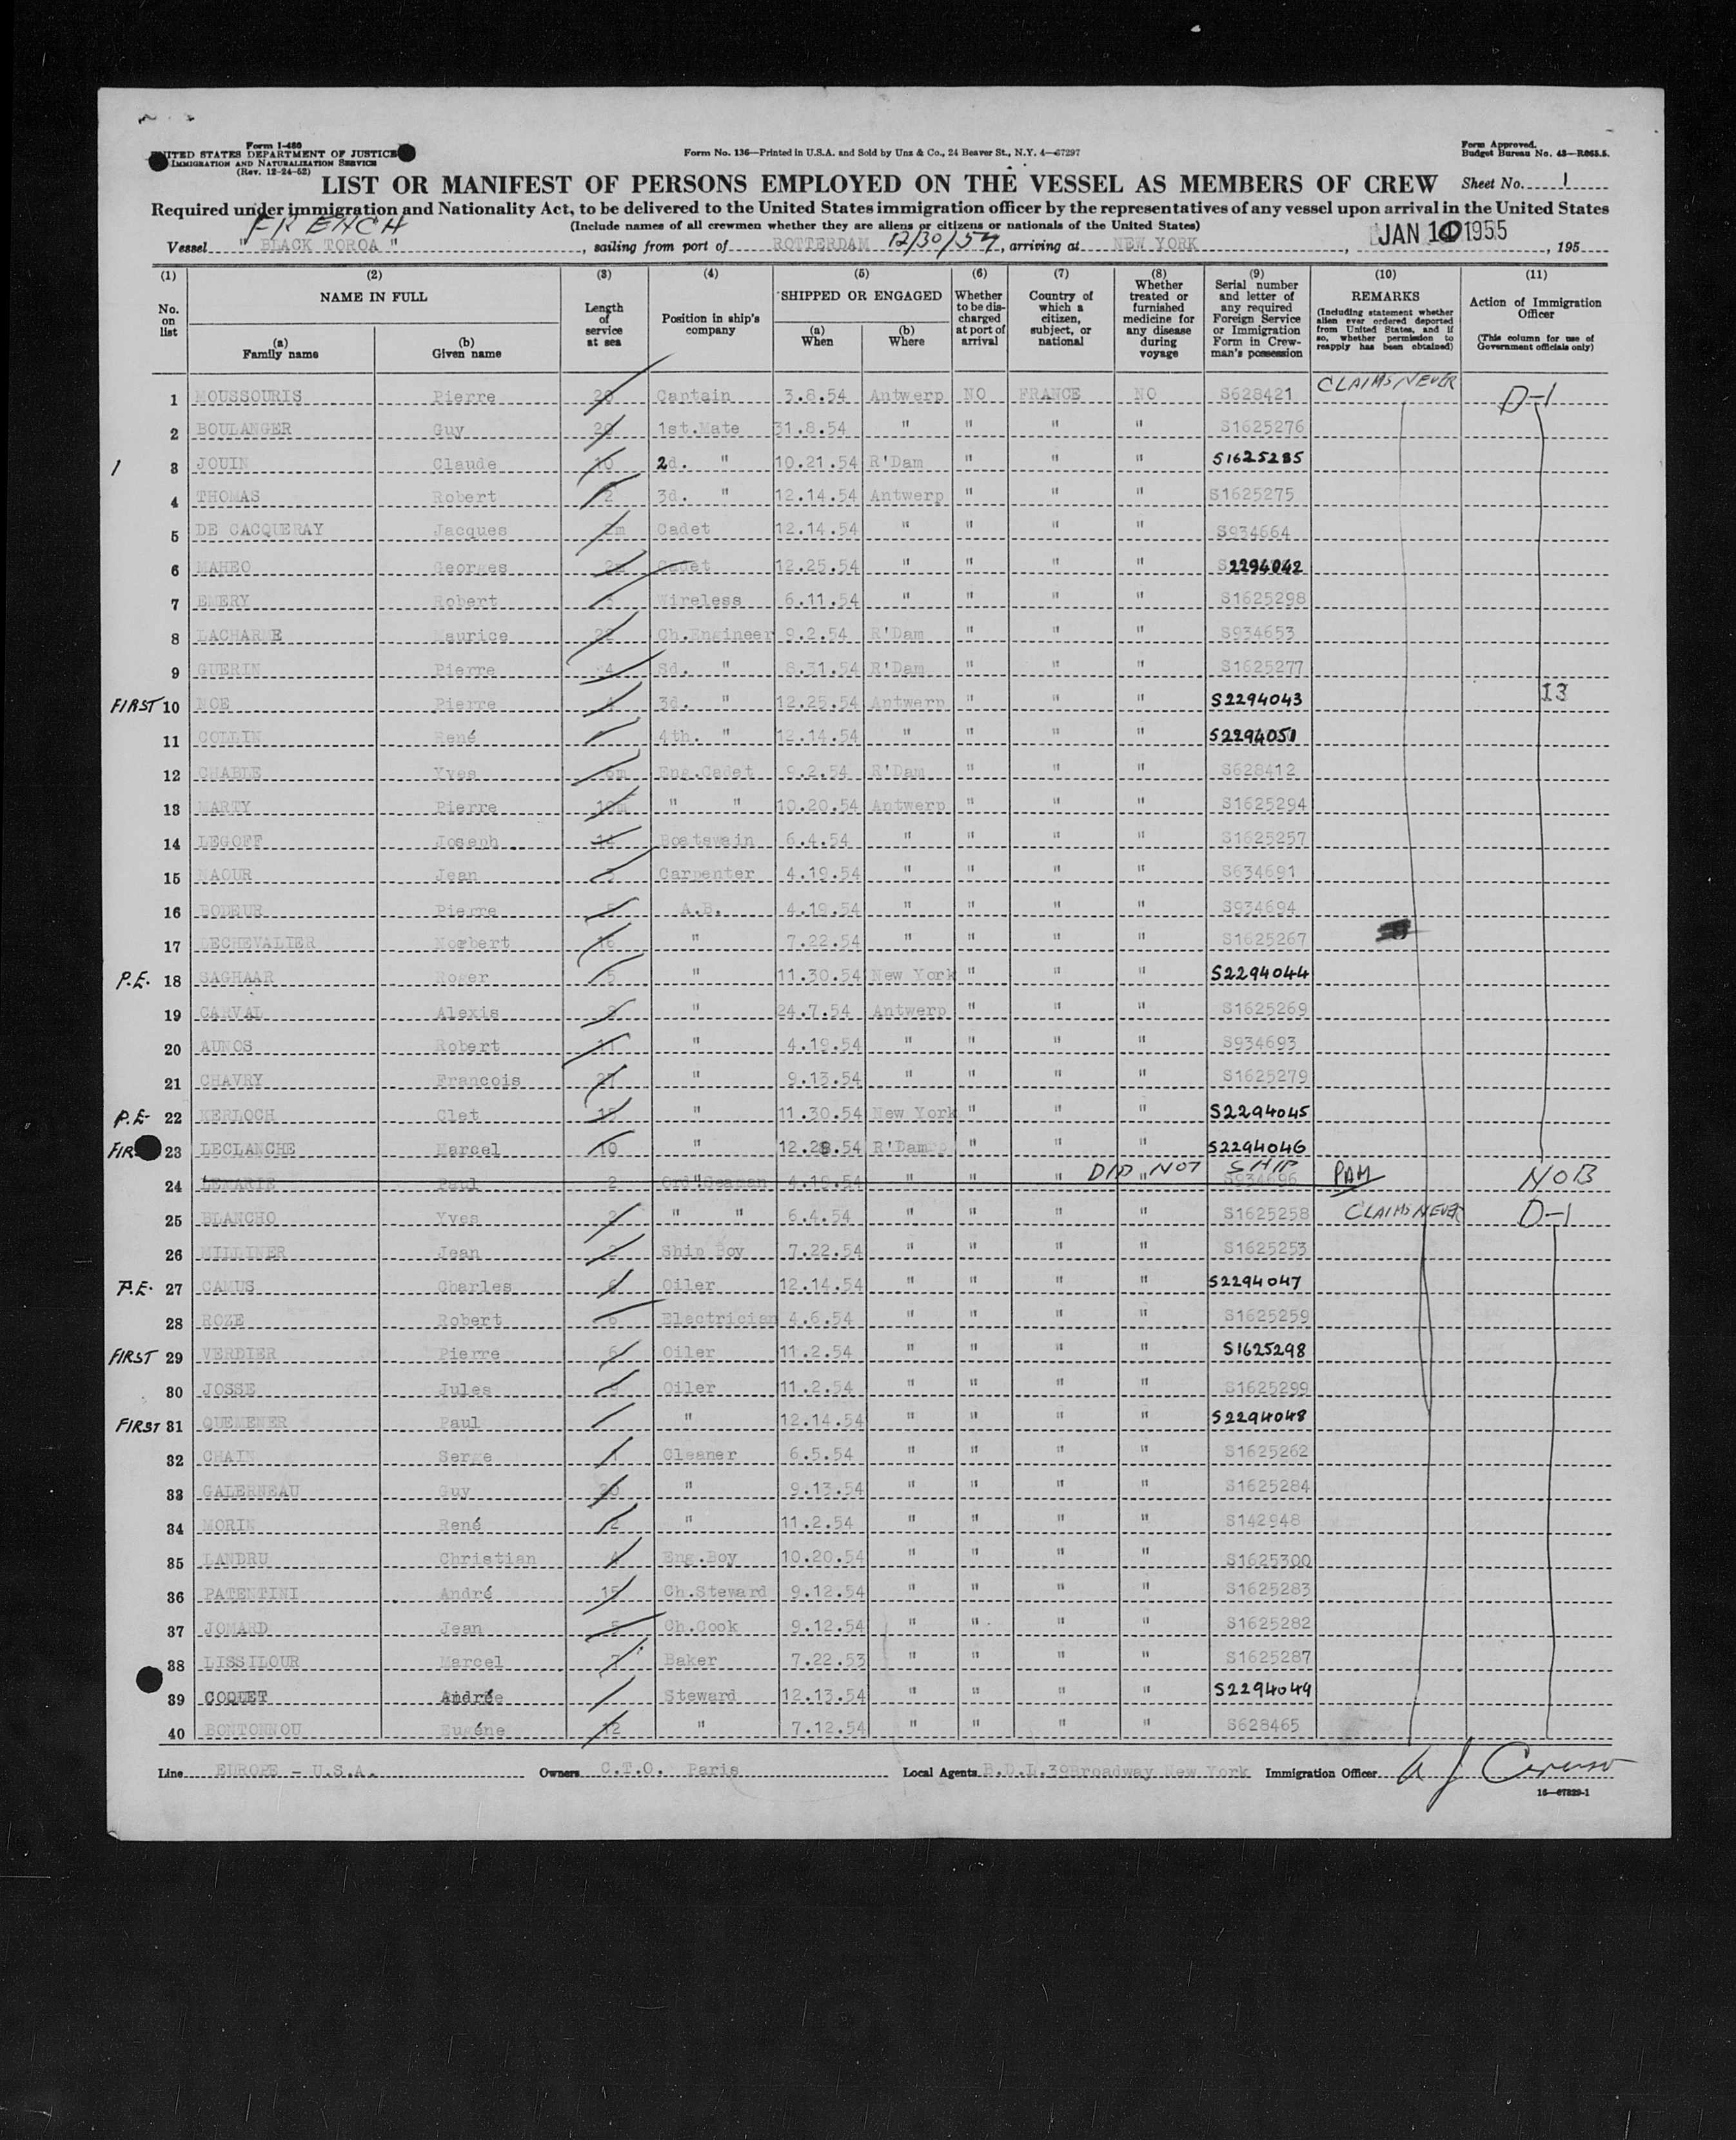 Form I-480
UNITED STATES DEPARTMENT OF JUSTICE
IMMIGRATION AND NATURALIZATION SERVICE
(Rev. 12-24-52)
Form No. 136—Printed in U.S.A. and Sold by Unz & Co., 24 Beaver St., N.Y. 4—67297
Form Approved.
Budget Bureau No. 43—R065.5.
LIST OR MANIFEST OF PERSONS EMPLOYED ON THE VESSEL AS MEMBERS OF CREW Sheet No. 1
Required under immigration and Nationality Act, to be delivered to the United States immigration officer by the representatives of any vessel upon arrival in the United States
(Include names of all crewmen whether they are aliens or citizens or nationals of the United States)
FRENCH
Vessel " BLACK TOROA ", sailing from port of ROTTERDAM 12/30/54, arriving at NEW YORK, JAN 10 1955, 195
(1) (2) (3) (4) (5) (6) (7) (8) (9) (10) (11)
No. on list
NAME IN FULL
(a) Family name
(b) Given name
Length of service at sea
Position in ship's company
SHIPPED OR ENGAGED
(a) When
(b) Where
Whether to be discharged at port of arrival
Country of which a citizen, subject, or national
Whether treated or furnished medicine for any disease during voyage
Serial number and letter of any required Foreign Service or Immigration Form in Crewman's possession
REMARKS
(Including statement whether alien ever ordered deported from United States, and if so, whether permission to reapply has been obtained)
Action of Immigration Officer
(This column for use of Government officials only)
1 MOUSSOURIS Pierre Captain 3.8.54 Antwerp NO FRANCE NO S628421 CLAIMS NEVER D-1
2 BOULANGER Guy 20 1st.Mate 31.8.54 " " " " S1625276
1 3 JOUIN Claude 10 2d. " 10.21.54 R'Dam " " " S1625285
4 THOMAS Robert 2 3d. " 12.14.54 Antwerp " " " S1625275
5 DE CACQUERAY Jacques 2m Cadet 12.14.54 " " " " S934664
6 MAHEO Georges Cadet 12.25.54 " " " " S2294042
7 EMERY Robert Wireless 6.11.54 " " " " S1625298
8 LACHARME Maurice 22 Ch.Engineer 9.2.54 R'Dam " " " S934653
9 GUERIN Pierre 4 Sd. " 8.31.54 R'Dam " " " S1625277
FIRST 10 NOE Pierre 4 3d. " 12.25.54 Antwerp " " " S2294043 13
11 COLLIN René 4th. " 12.14.54 " " " " S2294051
12 CHABLE Yves 6m Eng.Cadet 9.2.54 R'Dam " " " S628412
13 MARTY Pierre 10m " " 10.20.54 Antwerp " " " S1625294
14 LEGOFF Joseph 14 Boatswain 6.4.54 " " " " S1625257
15 NAOUR Jean Carpenter 4.19.54 " " " " S634691
16 BODEUR Pierre 5 A.B. 4.19.54 " " " " S934694
17 LECHEVALIER Norbert 16 " 7.22.54 " " " " S1625267
P.E. 18 SAGHAAR Roger 5 " 11.30.54 New York " " " S2294044
19 CARVAL Alexis " 24.7.54 Antwerp " " " S1625269
20 AUNOS Robert 11 " 4.19.54 " " " " S934693
21 CHAVRY Francois 27 " 9.13.54 " " " " S1625279
P.E- 22 KERLOCH Clet " 11.30.54 New York " " " S2294045
23 LECLANCHE Marcel 10 " 12.28.54 R'Dam " " " S2294046
24 LEMARIE Paul 2 Ord"Seaman 4.19.54 " " " " DID NOT SHIP S934696 NOB
25 BLANCHO Yves 2 " " 6.4.54 " " " " S1625258 CLAIMS NEVER D-1
26 MILLINER Jean 2 Ship Boy 7.22.54 " " " " S1625253
P.E. 27 CAMUS Charles 6 Oiler 12.14.54 " " " " S2294047
28 ROZE Robert 6 Electrician 4.6.54 " " " " S1625259
FIRST 29 VERDIER Pierre 6 Oiler 11.2.54 " " " " S1625298
30 JOSSE Jules Oiler 11.2.54 " " " " S1625299
FIRST 31 QUEMENER Paul " 12.14.54 " " " " S2294048
32 CHAIN Serge 1 Cleaner 6.5.54 " " " " S1625262
33 GALERNEAU Guy 20 " 9.13.54 " " " " S1625284
34 MORIN René 2 " 11.2.54 " " " " S142948
35 LANDRU Christian 4 Eng.Boy 10.20.54 " " " " S1625300
36 PATENTINI André 15 Ch.Steward 9.12.54 " " " " S1625283
37 JOMARD Jean 5 Ch.Cook 9.12.54 " " " " S1625282
38 LISSILOUR Marcel 7 Baker 7.22.53 " " " " S1625287
39 COQUET Andrée Steward 12.13.54 " " " " S2294049
40 BONTONNOU Eugéne 12 " 7.12.54 " " " " S628465
Line EUROPE - U.S.A. Owners C.T.O. Paris Local Agents B.D.L.39Broadway New York Immigration Officer A J Caruso
16—67829-1